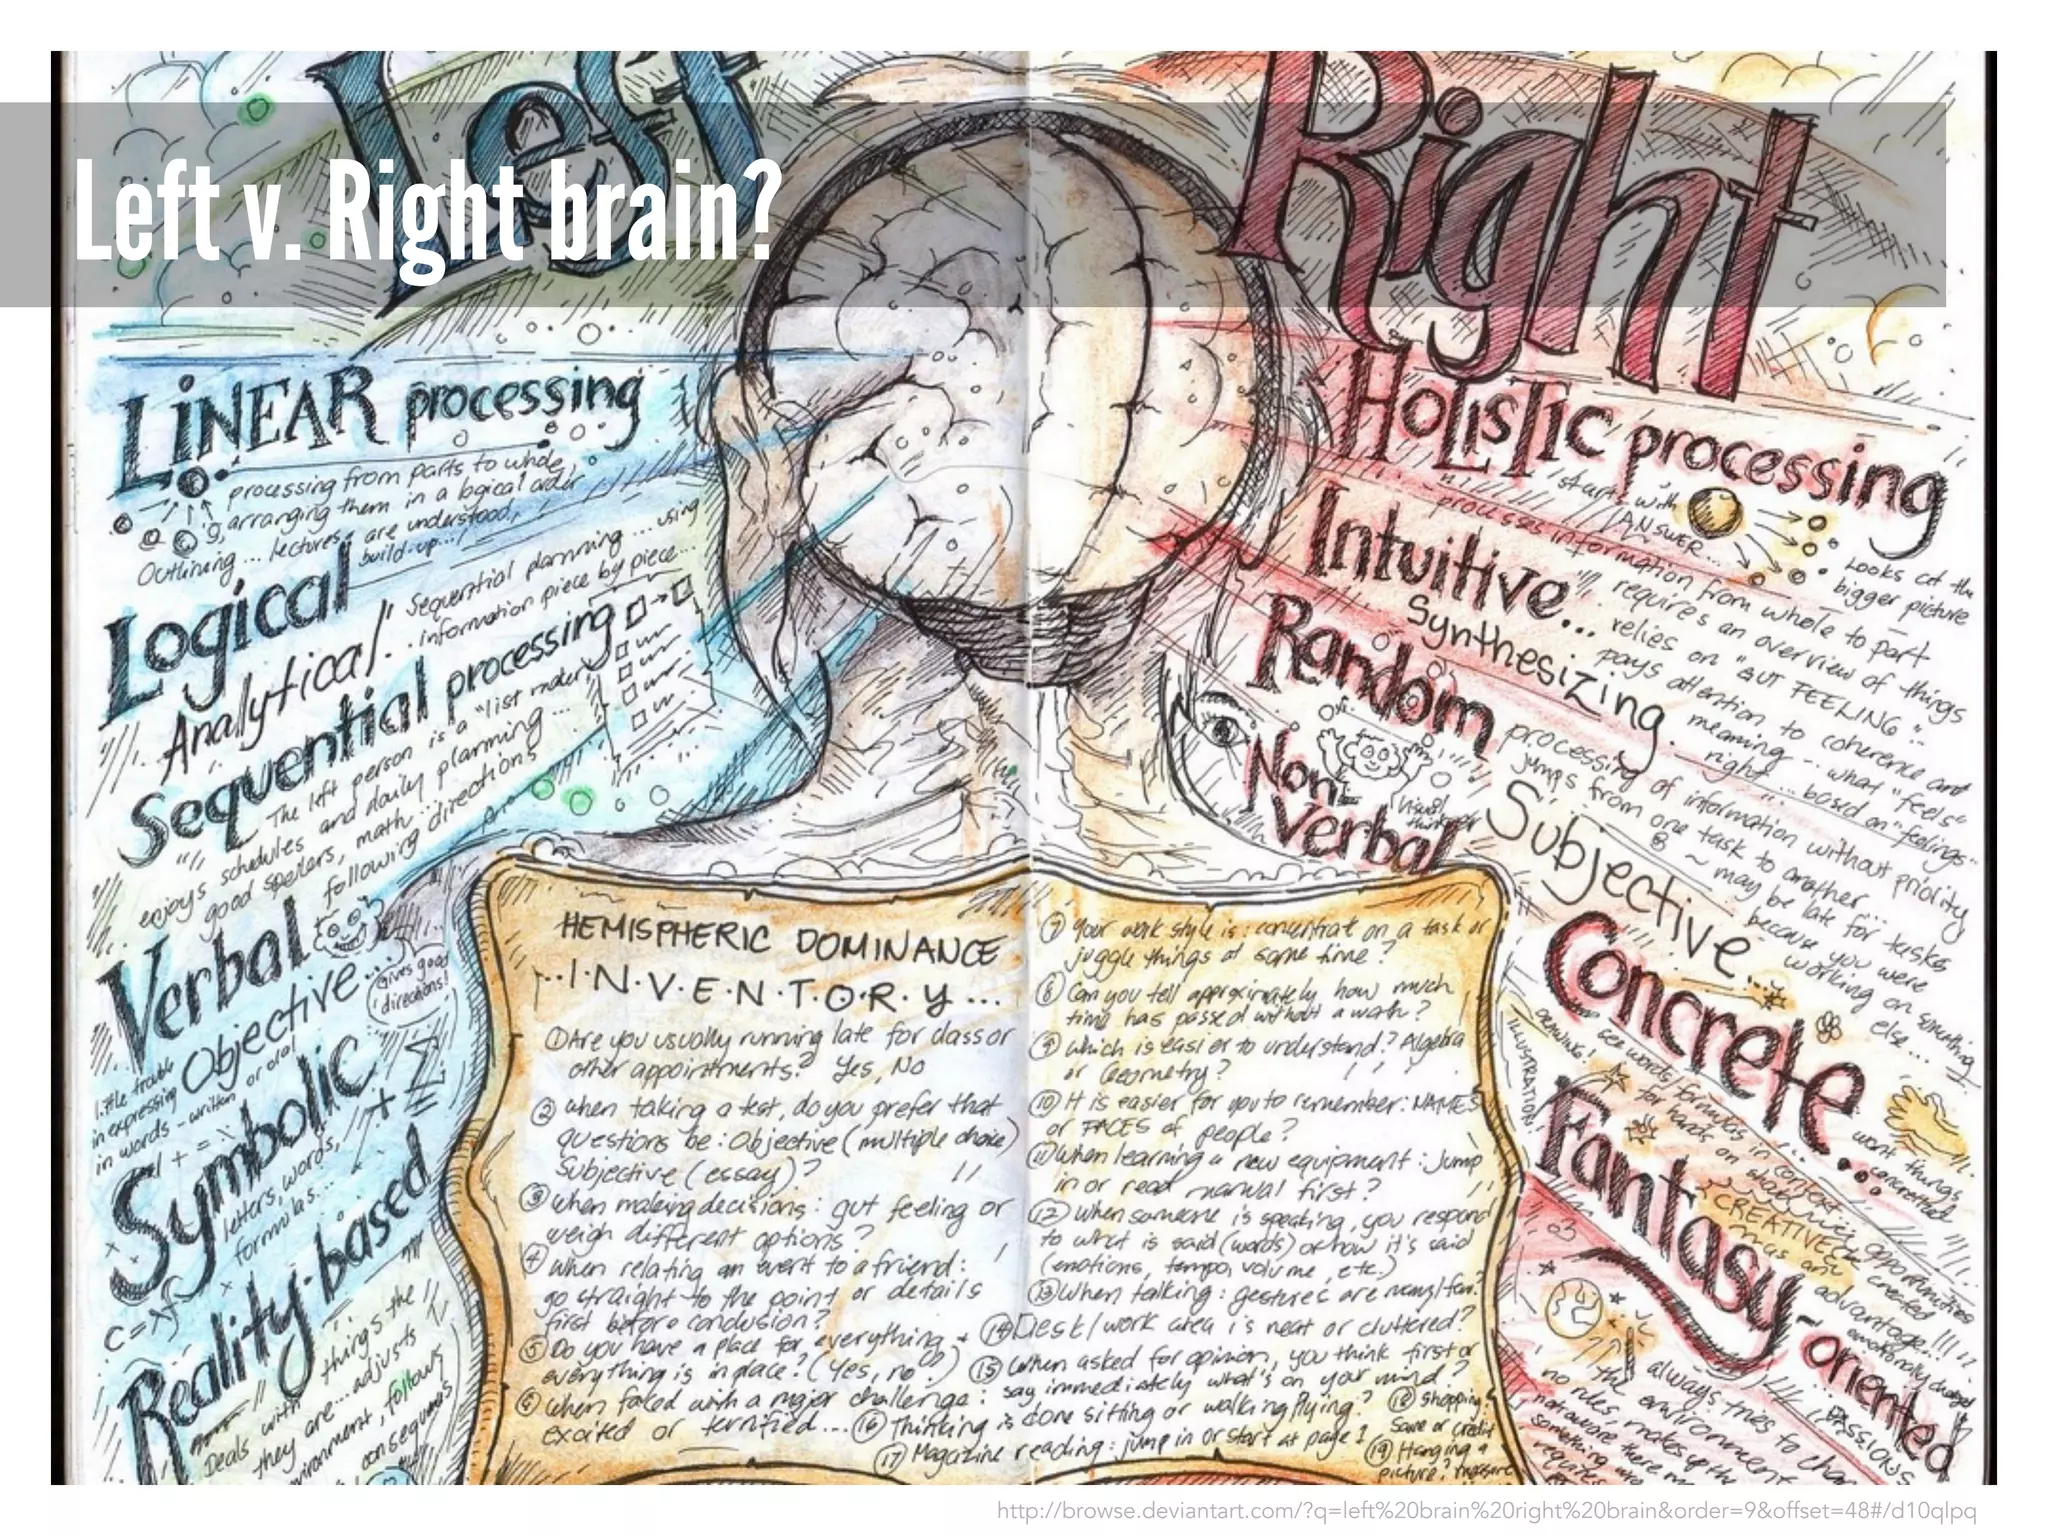 Left
Right
Left v. Right brain?
LiNEAR processing
processing from parts to whole,
arranging them in a logical order
Outlining... lectures are understood,
build-up...
Logical
Analytical
Sequential planning... using
information piece by piece...
Sequential processing
The left person is a "list maker"
enjoys schedules and daily planning...
good spellers, math...
following directions
Verbal
Gives good
directions!
Objective...
little trouble
in expressing
in words - written or oral
Symbolic
letters, words,
formulas...
Reality-based
Deals with things the
they are... adjusts
environment, follows
HOLiSTiC processing
starts with
ANSWER...
Looks at the
bigger picture
processes information from whole to part
Intuitive...
requires an overview of things
relies on "GUT FEELING"..
Synthesizing.
pays attention to coherence and
meaning... what "feels"
right... based on "feelings"
Random
processing of information without priority
jumps from one task to another...
may be late for tasks
because you were
working on something
else...
Non
Verbal
Visual
Subjective...
Concrete...
DRAWING!
ILLUSTRATION!
want things
Fantasy-oriented
CREATIVE
advantage...!!!
always tries to
the environment
no rules, makes up the
PASSIONS
HEMISPHERIC DOMINANCE
...I·N·V·E·N·T·O·R·Y...
① Are you usually running late for class or
other appointments? Yes, No
② When taking a test, do you prefer that
questions be: Objective (multiple choice)
Subjective (essay)?
③ When making decisions: gut feeling or
weigh different options?
④ When relating an event to a friend:
go straight to the point or details
first before conclusion?
⑤ Do you have a place for everything +
everything is in place? (Yes, no?)
⑥ When faked with a major challenge:
excited or terrified...
⑦ Your work style is: concentrat on a task or
juggle things at same time?
⑧ Can you tell approximately how much
time has passed without a wath?
⑨ Which is easier to understand? Algebra
or Geometry?
⑩ It is easier for you to remember: NAMES
or FACES of people?
⑪ When learning a new equipment: jump
in or read manual first?
⑫ When someone is speaking, you respond
to what is said (words) or how it's said
(emotions, tempo, volume, etc.)
⑬ When talking: gestures are many/few?
⑭ Desk/work area is neat or cluttered?
⑮ When asked for opinion, you think first or
say immediately what's on your mind?
⑯ Thinking is done sitting or walking/lying?
⑰ Magazine reading: jump in or start at page 1
⑱ Shopping:
Save or Credit
⑲ Hanging a
picture? measure
http://browse.deviantart.com/?q=left%20brain%20right%20brain&order=9&offset=48#/d10qlpq